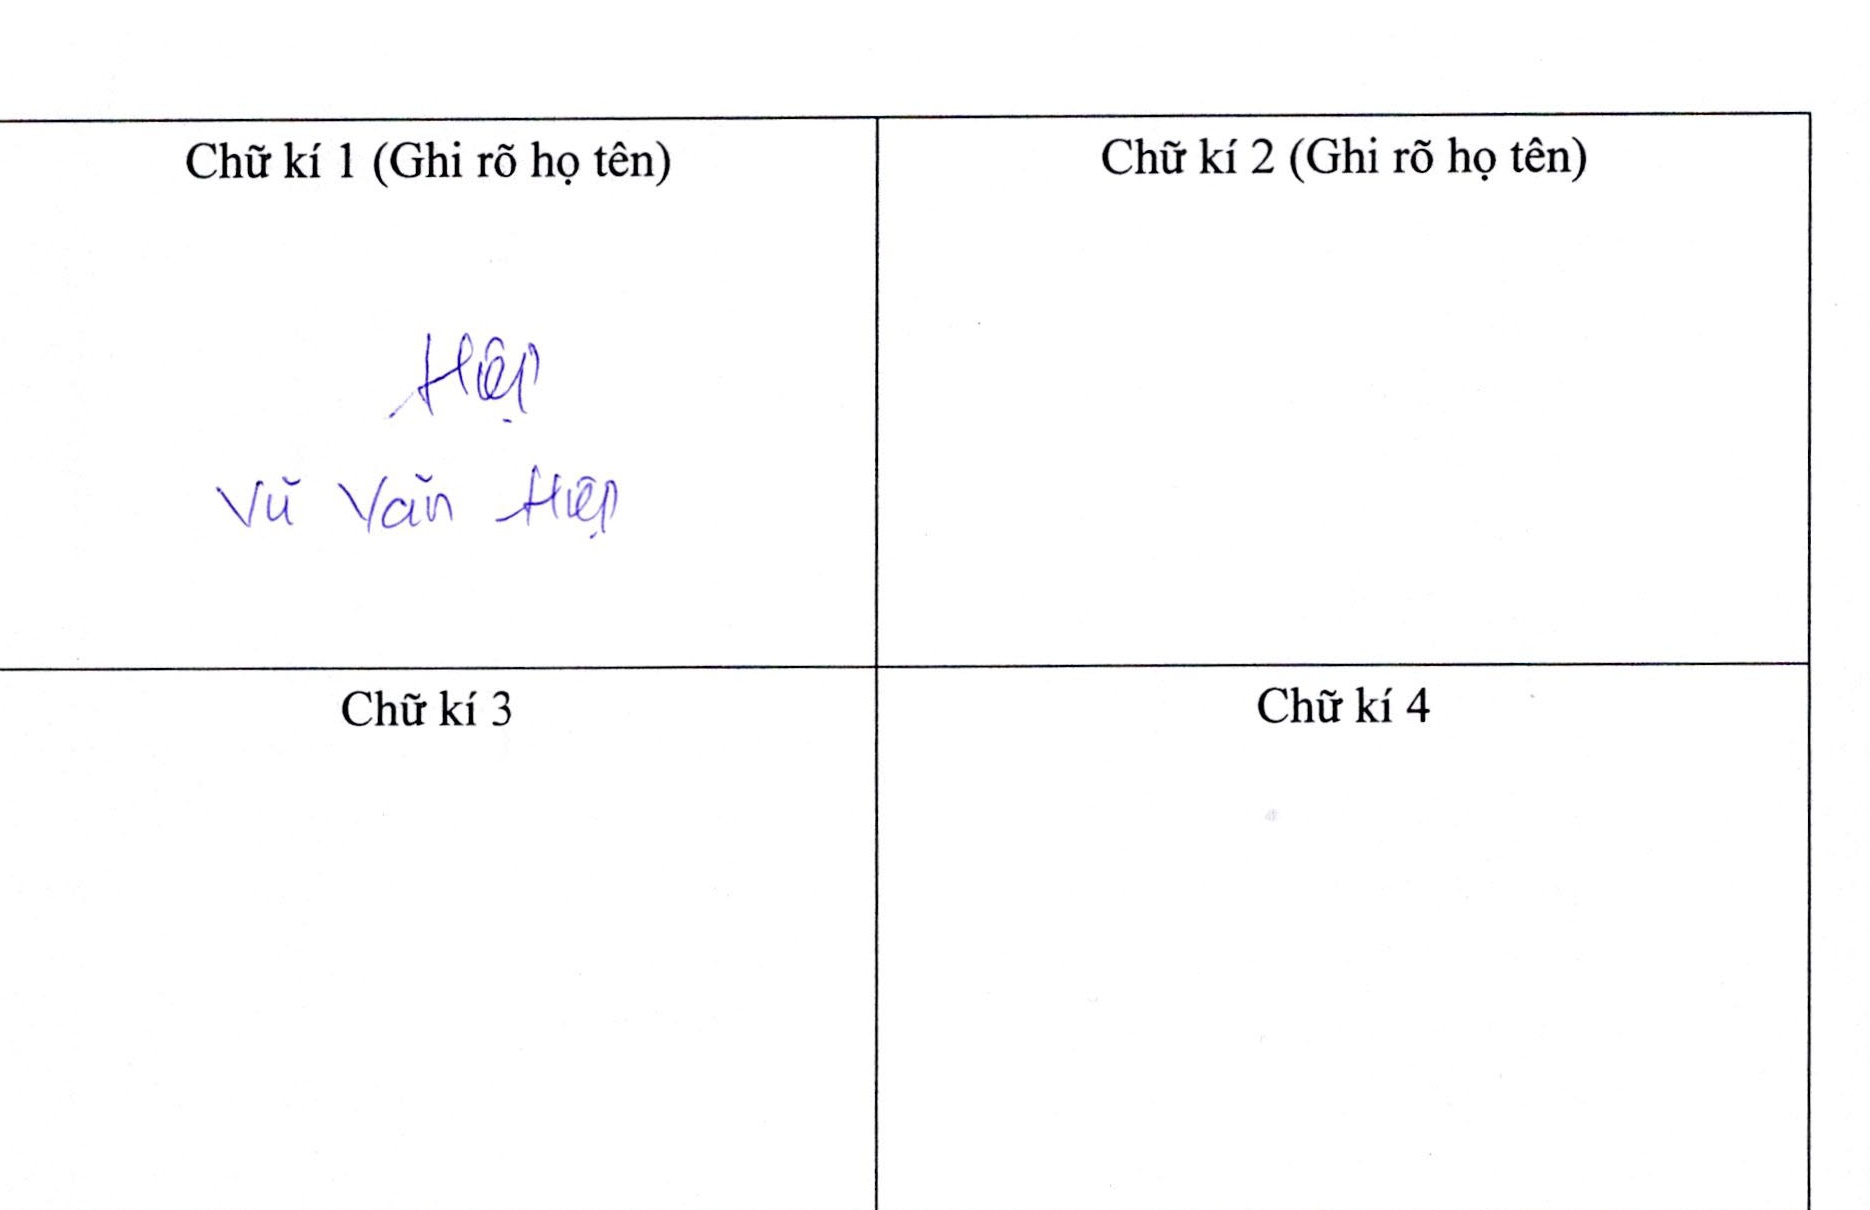 Chữ kí 1 (Ghi rõ họ tên)
Chữ kí 2 (Ghi rõ họ tên)
Hiệp
Vũ Văn Hiệp
Chữ kí 3
Chữ kí 4